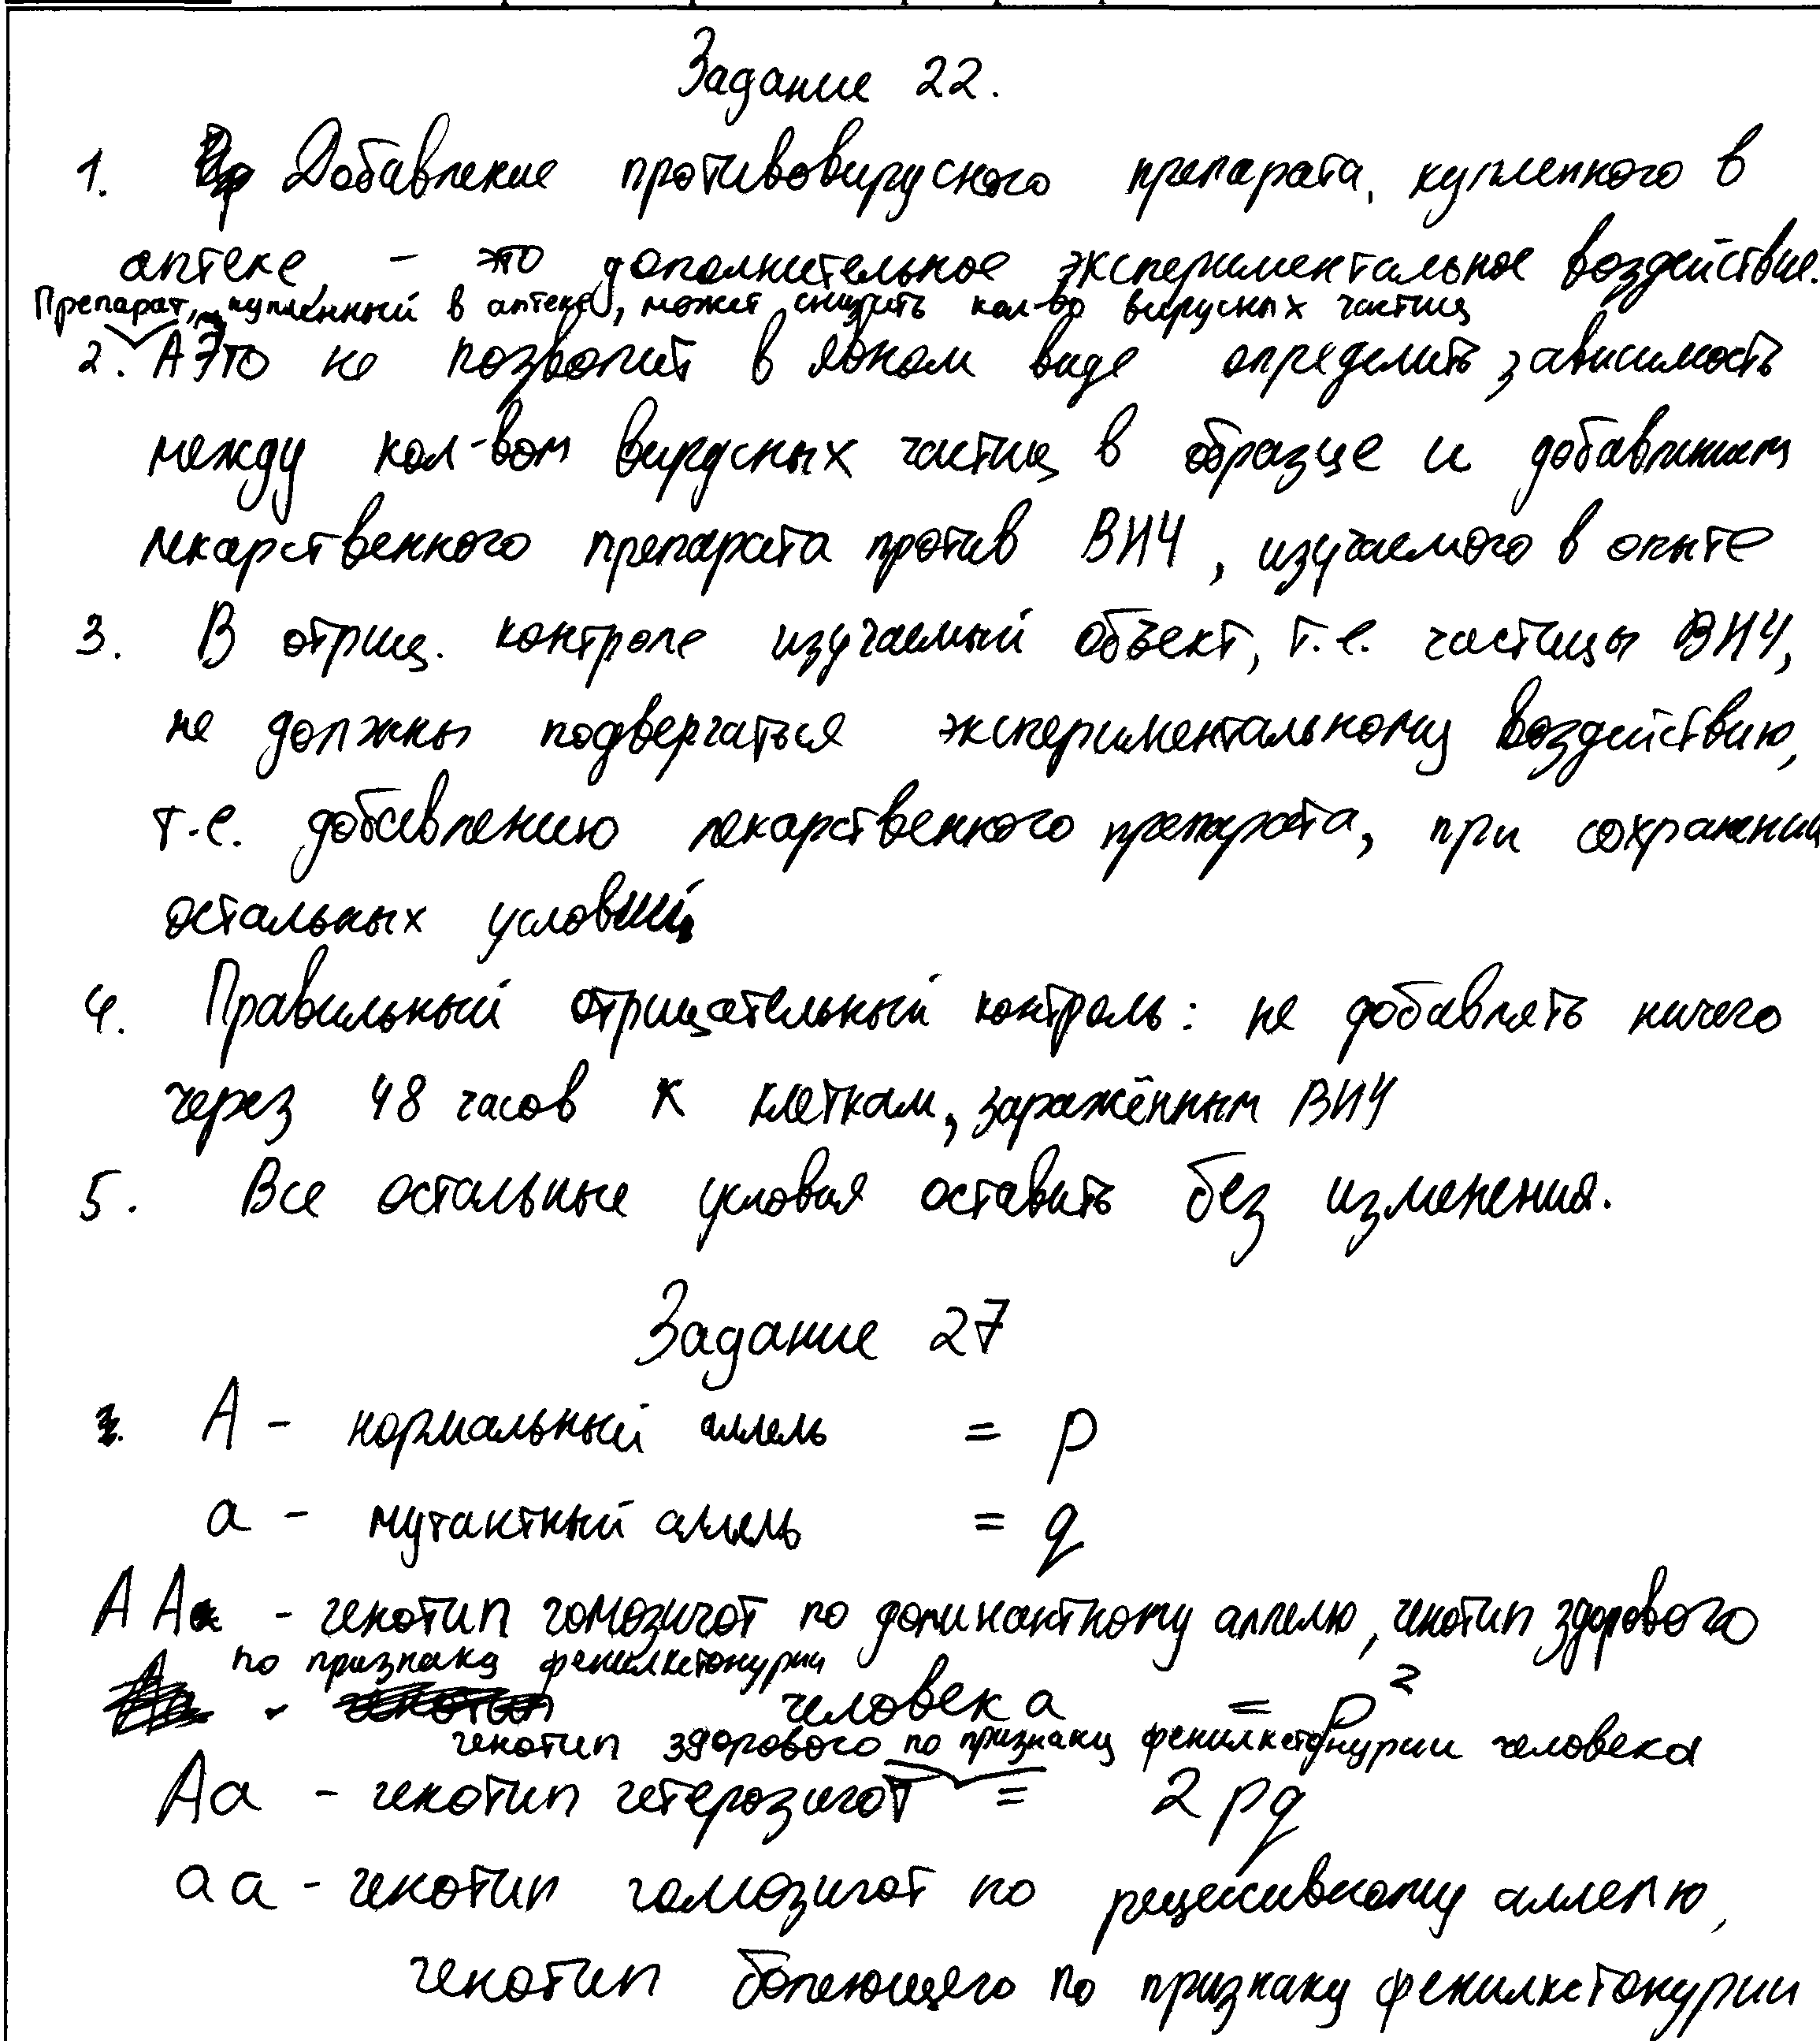 Задание 22.
1. Добавление противовирусного препарата, купленного в
аптеке, – это дополнительное экспериментальное воздействие.
Препарат, купленный в аптеке, может снизить кол-во вирусных частиц
2. Это не позволит в явном виде определить зависимость
между кол-вом вирусных частиц в образце и добавлением
лекарственного препарата против ВИЧ, изучаемого в опыте
3. В отриц. контроле изучаемый объект, т.е. частицы ВИЧ,
не должны подвергаться экспериментальному воздействию,
т.е. добавлению лекарственного препарата, при сохранении
остальных условий
4. Правильный отрицательный контроль: не добавлять ничего
через 48 часов к клеткам, заражённым ВИЧ
5. Все остальные условия оставить без изменения.
Задание 27
A – нормальный аллель = p
a – мутантный аллель = q
AA – генотип гомозигот по доминантному аллелю, генотип здорового
по признаку фенилкетонурии
человека = p²
генотип здорового по признаку фенилкетонурии человека
Aa – генотип гетерозигот = 2pq
aa – генотип гомозигот по рецессивному аллелю,
генотип болеющего по признаку фенилкетонурии